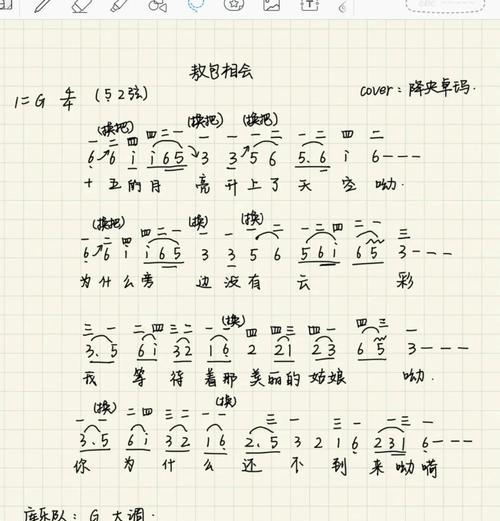 敖包相会
1=G 4/4 (52弦) cover:降央卓玛
(换把) (换把) (换把)
一 二 四 四 二 一 一 一 一 二 一 二 四 二
6 6 i i65 3 3 5 6 5.6 i 6---
十五的月 亮升上了天空呦.
(换把) (换)
6 6 i i65 3 3 5 6 56i 65 3---
为什么旁 边没有 云 彩
三 一 二 四 三 二 一 (换) 四 四 三 四 三 一
3.5 6i 32 16 2 21 23 65 3---
我 等 待 着那美丽的姑娘 呦.
(换) 二 四 三 二 一 一 (换)
3.5 6i 32 16 2.5 3 2 1 6 231 6---
你 为 什 么 还 不 到 来呦嗬
库乐队: G 大调.